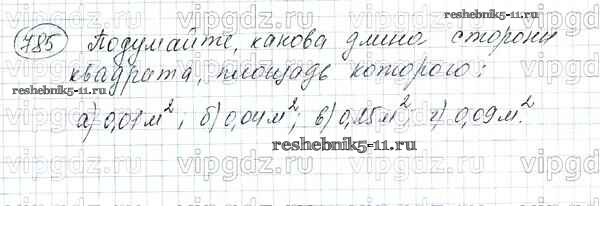 785 Подумайте, какова длина стороны
квадрата, площадь которого:
а) 0,01 м²; б) 0,04 м²; в) 0,25 м²; г) 0,09 м².
reshebnik5-11.ru
reshebnik5-11.ru
reshebnik5-11.ru
vipgdz.ru vipgdz.ru vipgdz.ru vipgdz.ru